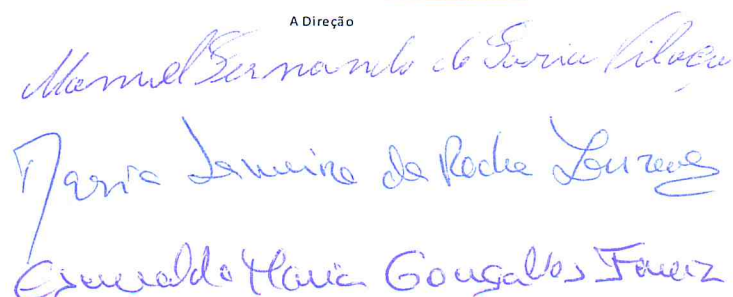 A Direção
Manuel Fernando de Faria Vilaça
Maria da Rocha Lourenço
Esmeralda Maria Gonçalves